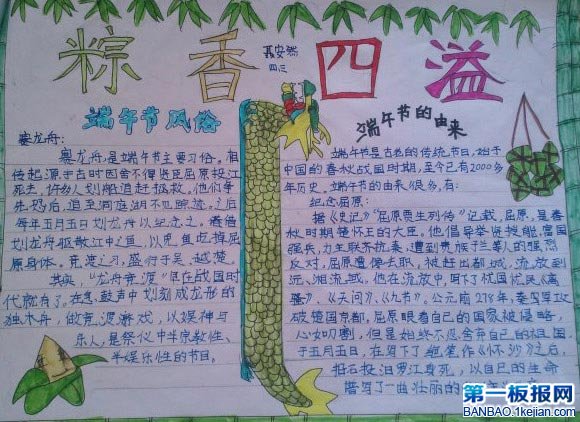 粽香四溢
聂安瑞
四三
端午节风俗
赛龙舟:
赛龙舟,是端午节主要习俗。相
传起源于古时因舍不得贤臣屈原投江
死去,许多人划船追赶拯救。他们争
先恐后,追至洞庭湖不见踪迹。之后
每年五月五日划龙舟以纪念之。借
划龙舟驱散江中之鱼,以免鱼吃掉屈
原身体。竞渡之习,盛行于吴越楚。
其实,“龙舟竞渡”早在战国时
代就有了。在急鼓声中划刻成龙形的
独木舟,做竞渡游戏,以娱神与
乐人,是祭仪中半宗教性、
半娱乐性的节目。
端午节的由来
端午节是古老的传统节日,始于
中国的春秋战国时期,至今已有2000多
年历史。端午节的由来很多,有:
纪念屈原:
据《史记》“屈原贾生列传”记载,屈原,是春
秋时期楚怀王的大臣。他倡导举贤授能,富国
强兵,力主联齐抗秦,遭到贵族子兰等人的强烈
反对,屈原遭馋去职,被赶出都城,流放到
沅、湘流域。他在流放中,写下了忧国忧民《离
骚》、《天问》、《九歌》。公元前278年,秦国军攻
破楚国京都,屈原眼看自己的国家被侵略,
心如刀割,但是始终不忍舍弃自己的祖国
于五月五日,在写下了绝笔作《怀沙》之后,
抱石投汨罗江身死,以自己的生命
谱写了一曲壮丽的
第一板报网
BANBAO.1kejian.com